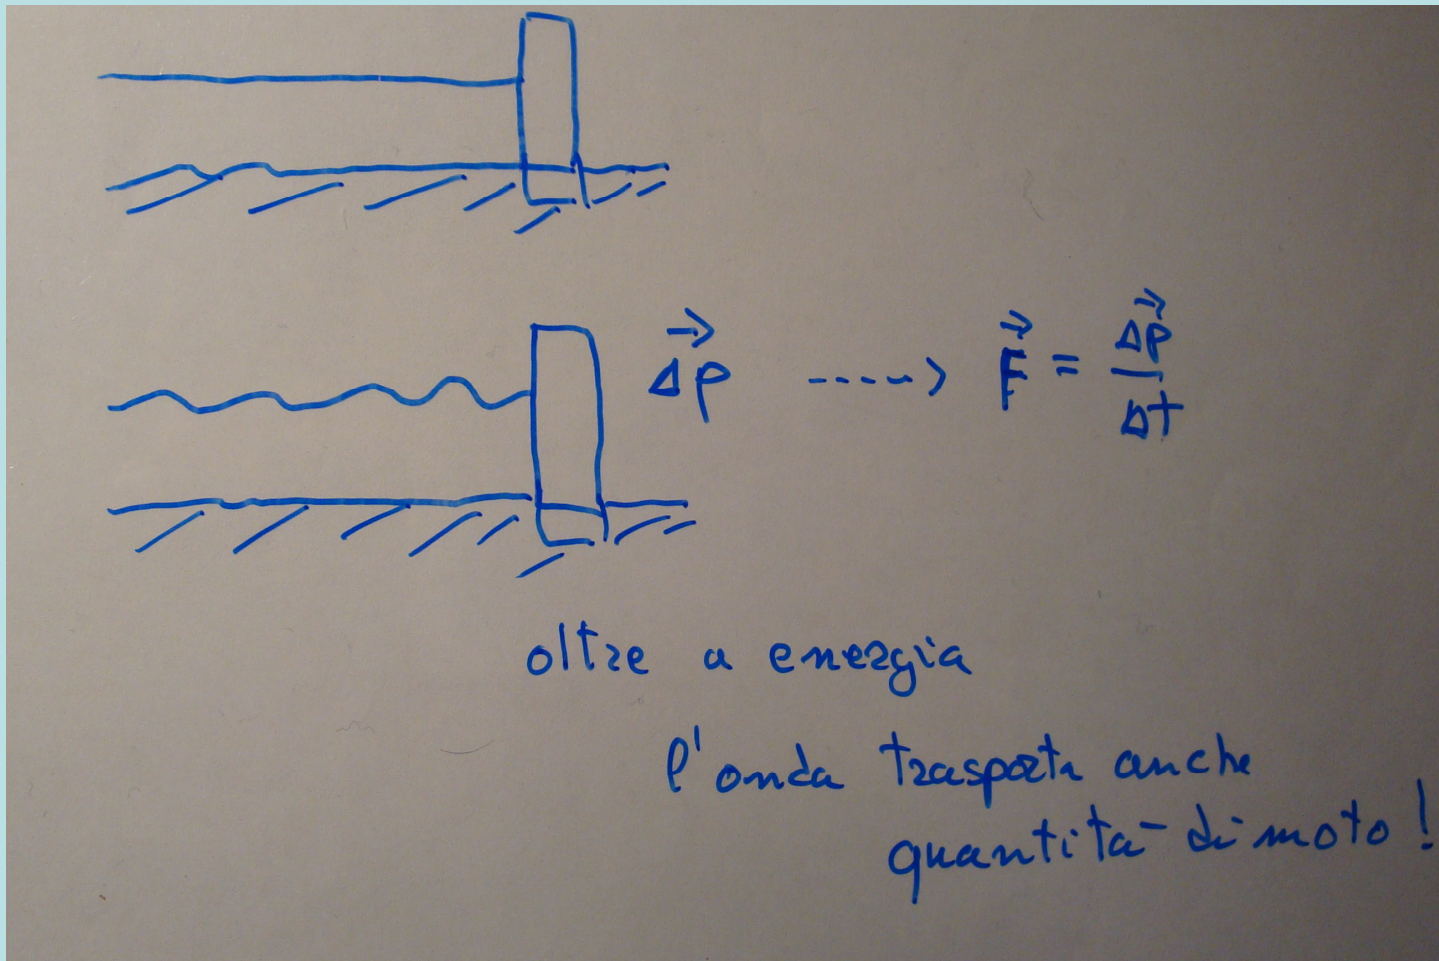 Δp⃗ -----> F⃗ = Δp⃗/Δt
oltre a energia
l'onda trasporta anche
quantità di moto!